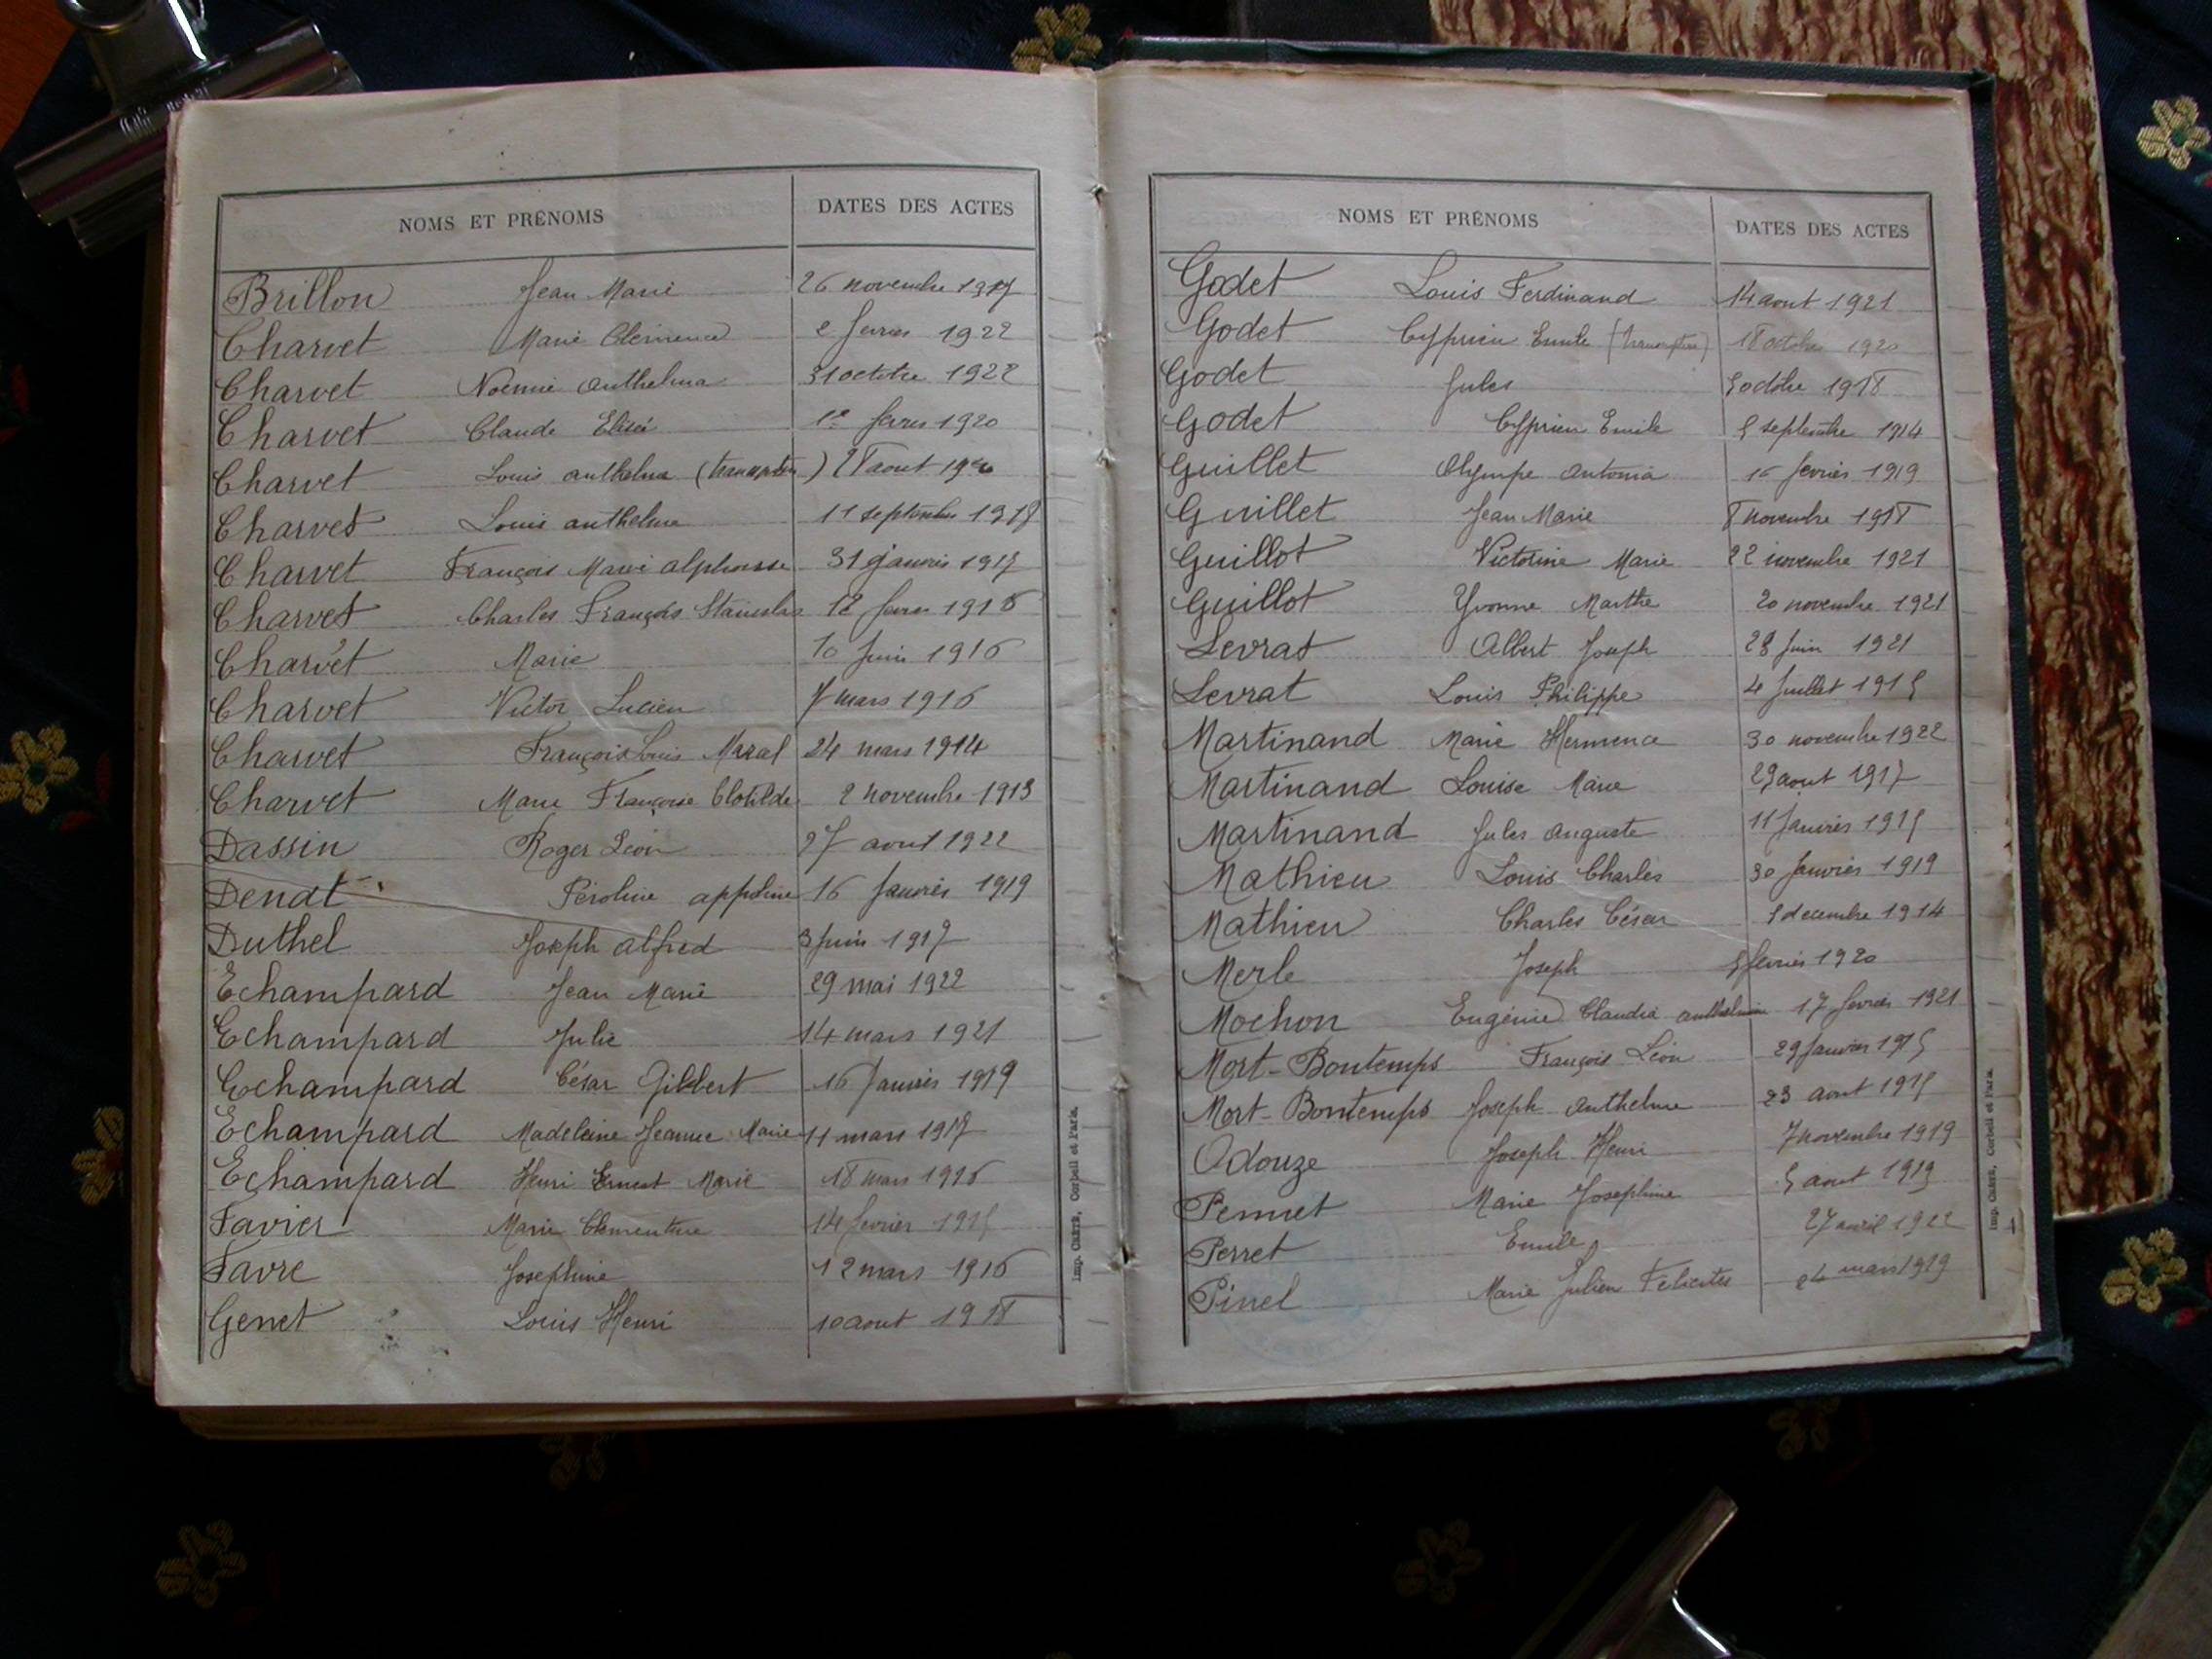 NOMS ET PRÉNOMS DATES DES ACTES
Brillon Jean Marie 26 novembre 1917
Charvet Marie Clémence 2 fevrier 1922
Charvet Noémie anthelma 31 octobre 1922
Charvet Claude Elisée 1er fevrier 1920
Charvet Louis anthelme (transcription) 28 aout 1920
Charvet Louis anthelme 11 septembre 1918
Charvet François Marie alphonse 31 janvier 1917
Charvet Charles François Stanislas 12 fevrier 1916
Charvet Marie 10 Juin 1916
Charvet Victor Lucien 7 mars 1916
Charvet François Louis 24 mars 1914
Charvet Marie Françoise Clotilde 2 novembre 1913
Dassin Roger Léon 1922
Denat Péroline appoline 16 Janvier 1919
Duthel Joseph alfred 3 Juin 1917
Echampard Jean Marie 29 mai 1922
Echampard Julie 14 mars 1921
Echampard César Gilbert 16 Janvier 1919
Echampard Madeleine Jeanne Marie 11 mars 1917
Echampard Henri Ernest Marie 18 mars 1916
Favier Marie Clementine 14 fevrier 1915
Favre Josephine 12 mars 1916
Genet Louis Henri 10 aout 1918
Imp. Crété, Corbeil et Paris.
NOMS ET PRÉNOMS DATES DES ACTES
Godet Louis Ferdinand 14 aout 1921
Godet Cyprien Emile (transcription) 18 octobre 1920
Godet Jules 5 octobre 1918
Godet Cyprien Emile 5 septembre 1914
Guillet Olympe antonia 16 fevrier 1919
Guillet Jean Marie 8 novembre 1918
Guillot Victorine Marie 22 novembre 1921
Guillot Yvonne Marthe 20 novembre 1921
Levrat Albert Joseph 28 Juin 1921
Levrat Louis Philippe 4 Juillet 1915
Martinand Marie Hermence 30 novembre 1922
Martinand Louise Marie 29 aout 1917
Martinand Jules auguste 11 Janvier 1915
Mathieu Louis Charles 30 Janvier 1919
Mathieu Charles César 5 decembre 1914
Merle Joseph 5 fevrier 1920
Mochon Eugénie Claudia anthelmine 17 fevrier 1921
Mort-Bontemps François Léon 29 Janvier 1915
Mort-Bontemps Joseph anthelme 23 aout 1915
Odouze Joseph Henri 7 novembre 1919
Pennet Marie Josephine 5 aout 1919
Perret Emile 27 avril 1922
Pinel Marie Julien Felicité 24 mars 1919
Imp. Crété, Corbeil et Paris.